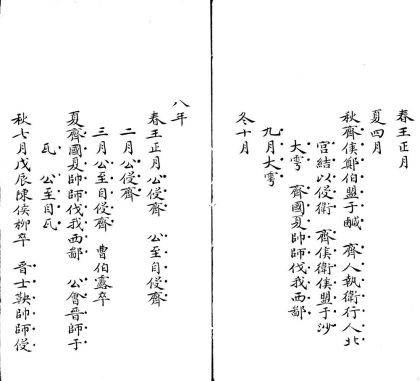 春王正月
夏四月
秋齊侯鄭伯盟于鹹　齊人執衛行人北
宮結以侵衛　齊侯衛侯盟于沙
大雩　齊國夏帥師伐我西鄙
九月大雩
冬十月
八年
春王正月公侵齊　公至自侵齊
二月公侵齊
三月公至自侵齊　曹伯露卒
夏齊國夏帥師伐我西鄙　公會晉師于
瓦　公至自瓦
秋七月戊辰陳侯柳卒　晉士鞅帥師侵